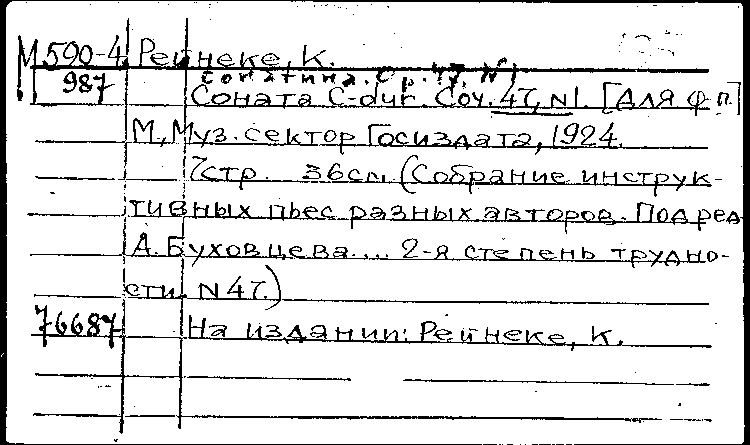 М590-4 Рейнеке, К.
Сонатина. Ор. 47, N1
987 Соната C-dur. Соч. 47, N1. [Для ф-п.]
М., Муз. сектор Госиздата, 1924.
7стр. 36см. (Собрание инструк-
тивных пьес разных авторов. Под ред
А. Буховцева... 2-я степень трудно-
сти. N 47.)
76687 На издании: Рейнеке, К.